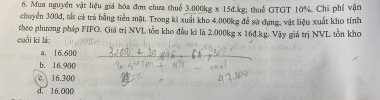 6. Mua nguyên vật liệu giá hóa đơn chưa thuế 3.000kg x 15đ.kg; thuế GTGT 10%. Chi phí vận
chuyển 300đ, tất cả trả bằng tiền mặt. Trong kì xuất kho 4.000kg để sử dụng, vật liệu xuất kho tính
theo phương pháp FIFO. Giá trị NVL tồn kho đầu kì là 2.000kg x 16đ.kg. Vậy giá trị NVL tồn kho
cuối kì là:
a. 16.600
b. 16.900
c. 16.300
d. 16.000